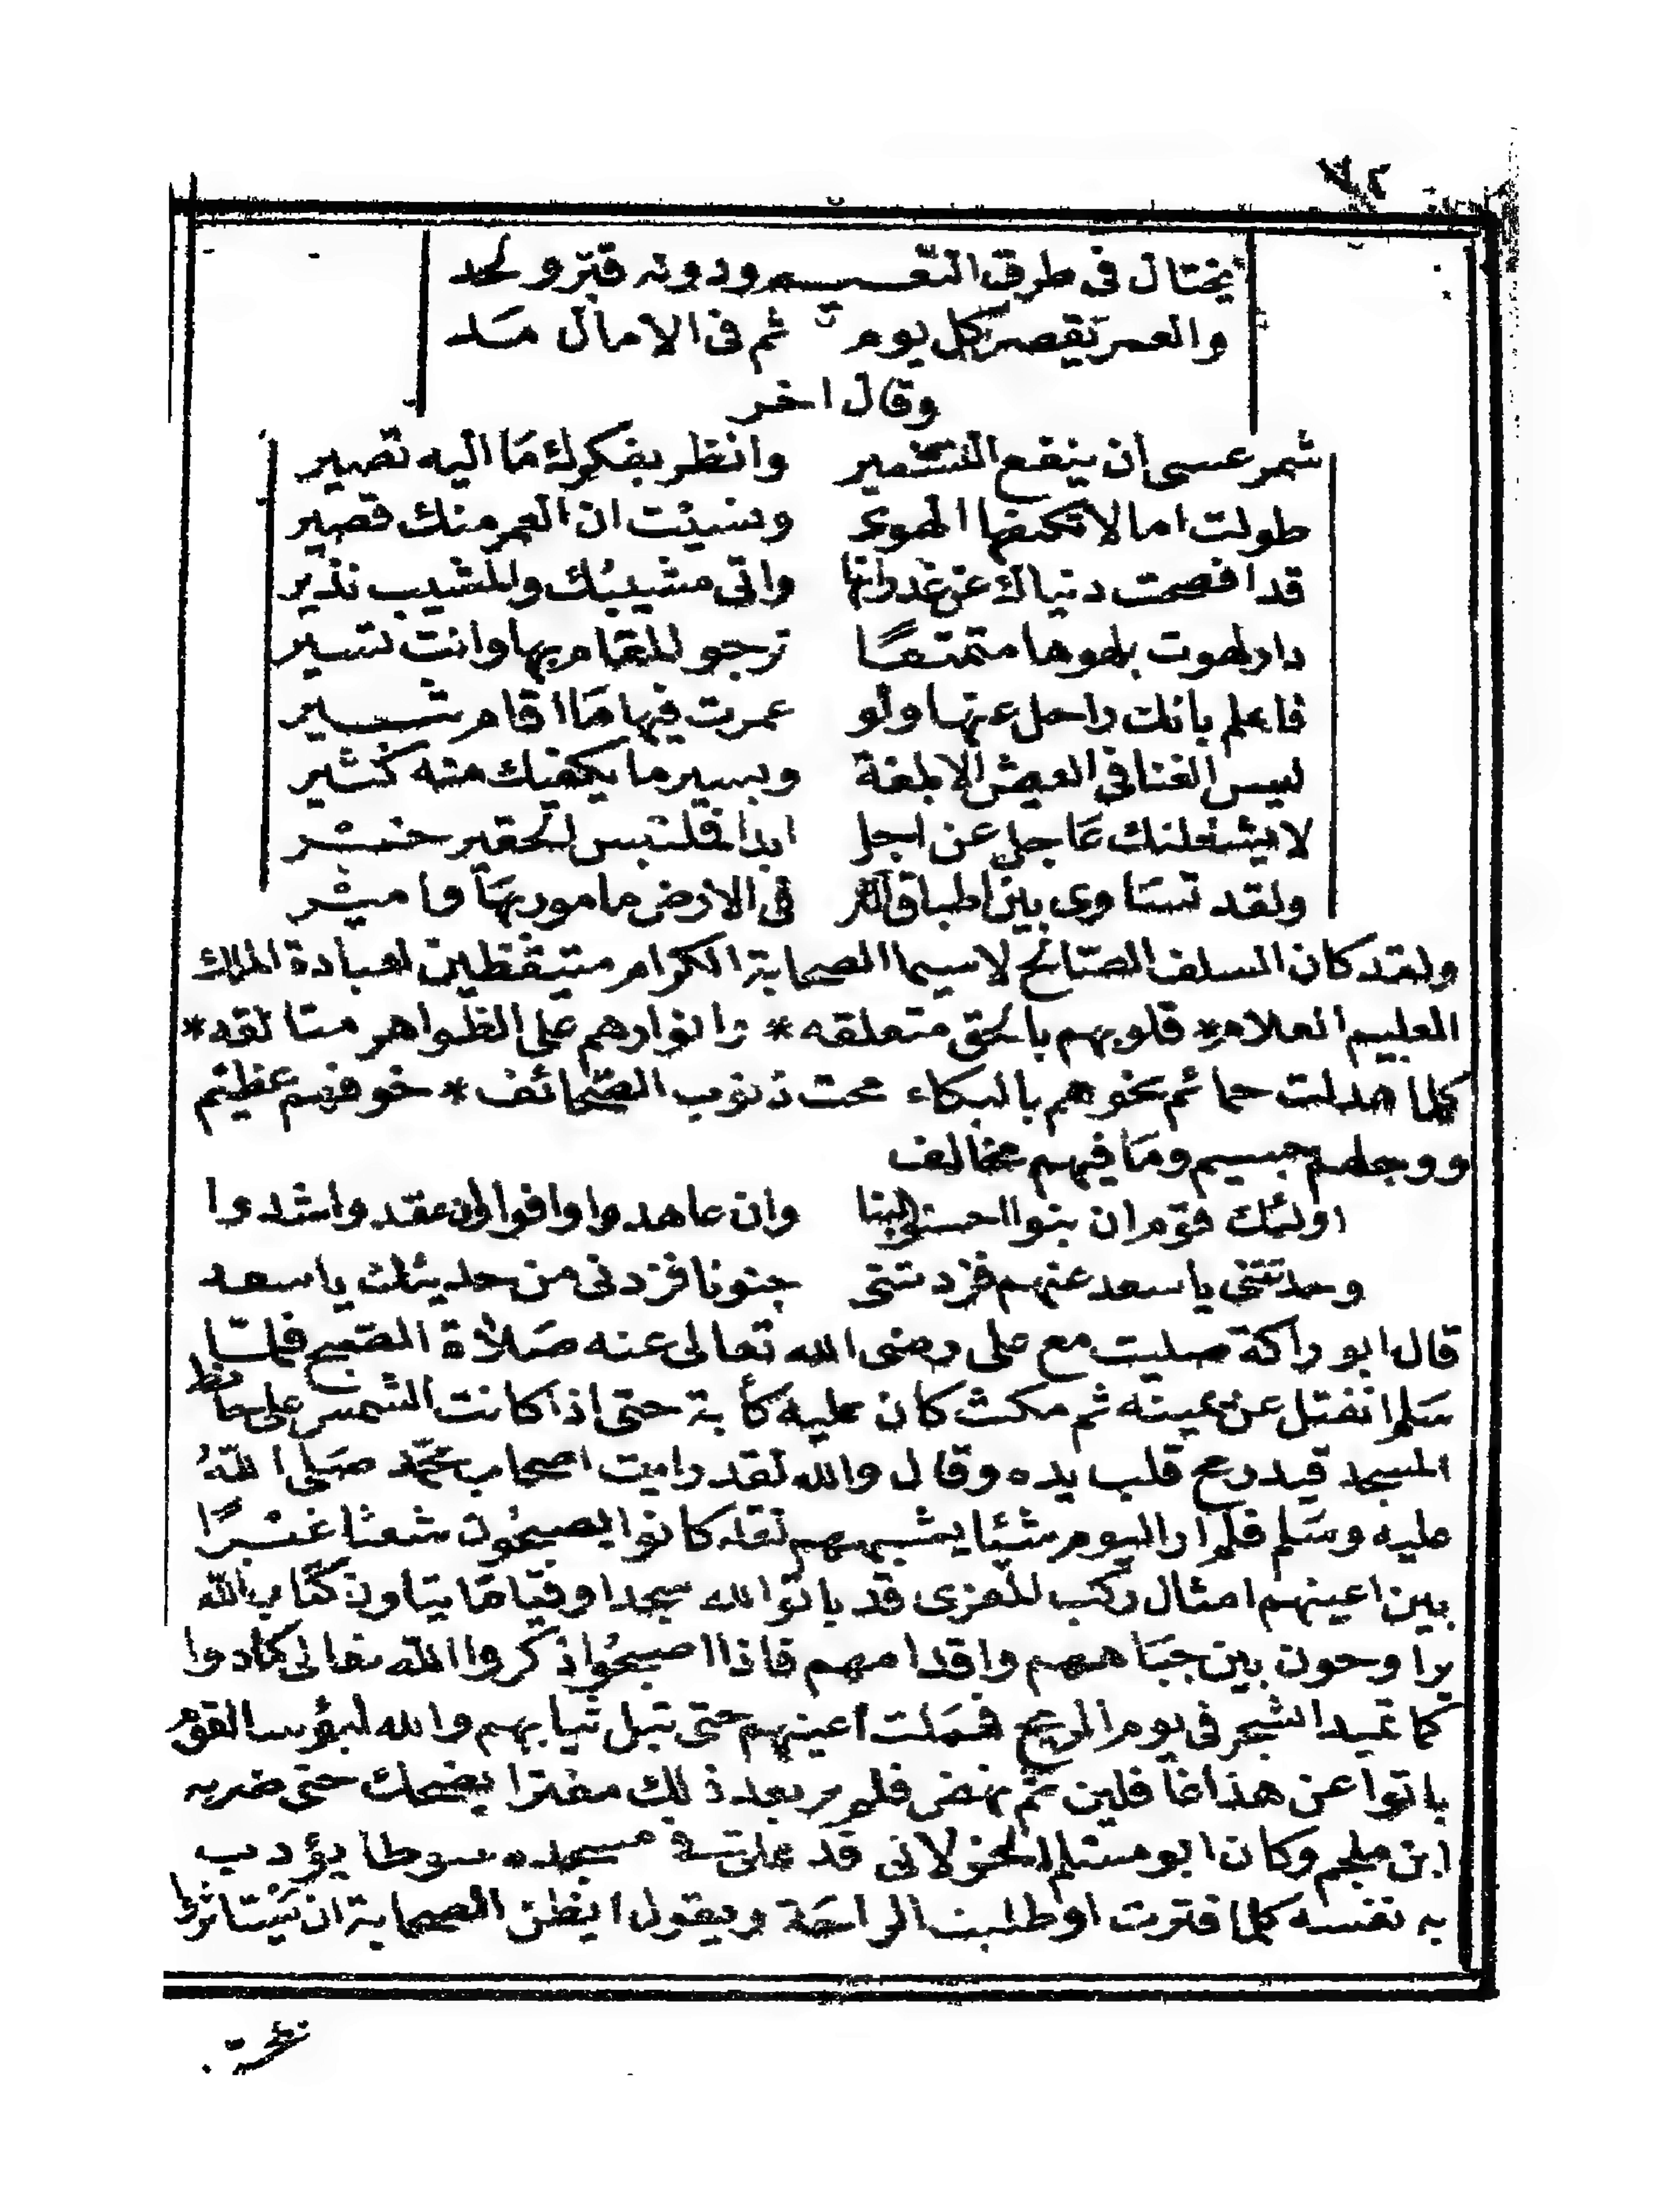 ٧٢
يختال فى طرق النعيــم ودونه قبر ولحد
والعمر يقصر كل يوم ثم فى الامال مد
وقال اخر
شمر عسى ان ينفع التشمير وانظر بفكرك ما اليه تصير
طولت امالا تكنفها الهوى ونسيت ان العمر منك قصير
قد افصحت دنياك عن غدراتها واتى مشيبك والمشيب نذير
دار لهوت بلهوها متمتعا ترجو المقام بها وانت تسير
فاعلم بانك راحل عنها ولو عمرت فيها ما اقام ثبــير
ليس الغنا فى العيش الا بلغة ويسير ما يكفيك منه كثير
لا يشغلنك عاجل عن اجل ابدا فلتبس الحقير
ولقد تساوى بين اطباق الثر فى الارض مامور بها وامير
ولقد كان السلف الصالح لاسيما الصحابة الكرام متيقظين لعبادة الملك
العليم العلام* قلوبهم بالحق متعلقه * وانوارهم على الظواهر متالقه*
كلما هدلت حمائم نحوهم بالبكاء محت ذنوب الصحائف * خوفهم عظيم
ووجلهم جسيم وما فيهم مخالف
اولئك قوم ان بنوا احسنوا البنا وان عاهدوا وافوا وان عقدوا شدوا
وحدثتنى يا سعد عنهم فزدتنى جنونا فزدنى من حديثك يا سعد
قال ابو راكة صليت مع على رضى الله تعالى عنه صلاة الصبح فلما
سلم انفتل عن يمينه ثم مكث كان عليه كأبة حتى اذا كانت الشمس على حائط
المسجد قيد رمح قلب يده وقال والله لقد رايت اصحاب محمد صلى الله
عليه وسلم فلم ار اليوم شئيا يشبههم لقد كانوا يصبحون شعثا غبرا
بين اعينهم امثال ركب المعزى قد باتوا لله سجدا وقياما يتلون كتاب الله
يراوحون بين جباههم واقدامهم فاذا اصبحوا ذكروا الله تعالى مادوا
كما تميد الشجر فى يوم الريح فهملت اعينهم حتى تبل ثيابهم والله ليؤسا القوم
باتوا عن هذا غافلين ثم نهض فلم ير بعد ذلك مفترا يضحك حتى ضربه
ابن ملجم وكان ابو مسلم الخولانى قد علق فى مسجده سوطا يؤدب
به نفسه كلما فترت او طلبت الراحة ويقول ايظن الصحابة ان يستاثروا